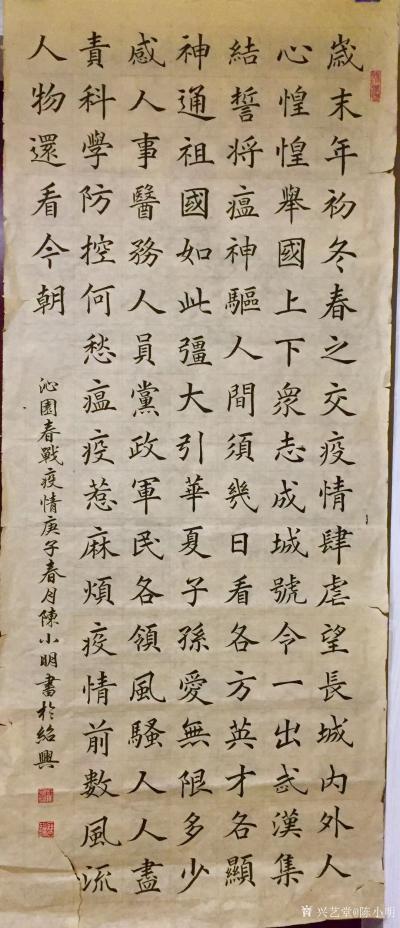 歲末年初冬春之交疫情肆虐望長城內外人
心惶惶舉國上下衆志成城號令一出武漢集
結誓將瘟神驅人間須幾日看各方英才各顯
神通祖國如此彊大引華夏子孫愛無限多少
感人事醫務人員黨政軍民各領風騷人人盡
責科學防控何愁瘟疫惹麻煩疫情前數風流
人物還看今朝
沁園春戰疫情庚子春月陳小明書於紹興
兴艺堂@陈小明